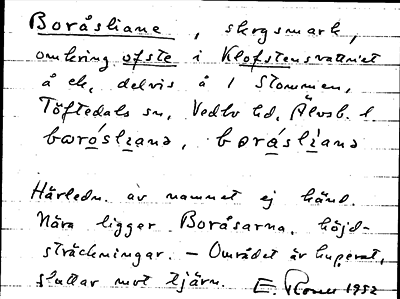 Boråsliane, skogsmark,
omkring ofste i Klofstensvattnet
å ek. delvis å 1 Stommen,
Töftedals sn, Vedbo hd, Älvsb. l.
bwrósliana, boråsliana
Härledn. av namnet ej känd.
Nära ligger Boråsarna, höjd-
sträckningar. – Området är kuperat,
sluttar mot tjärn. E. 1952